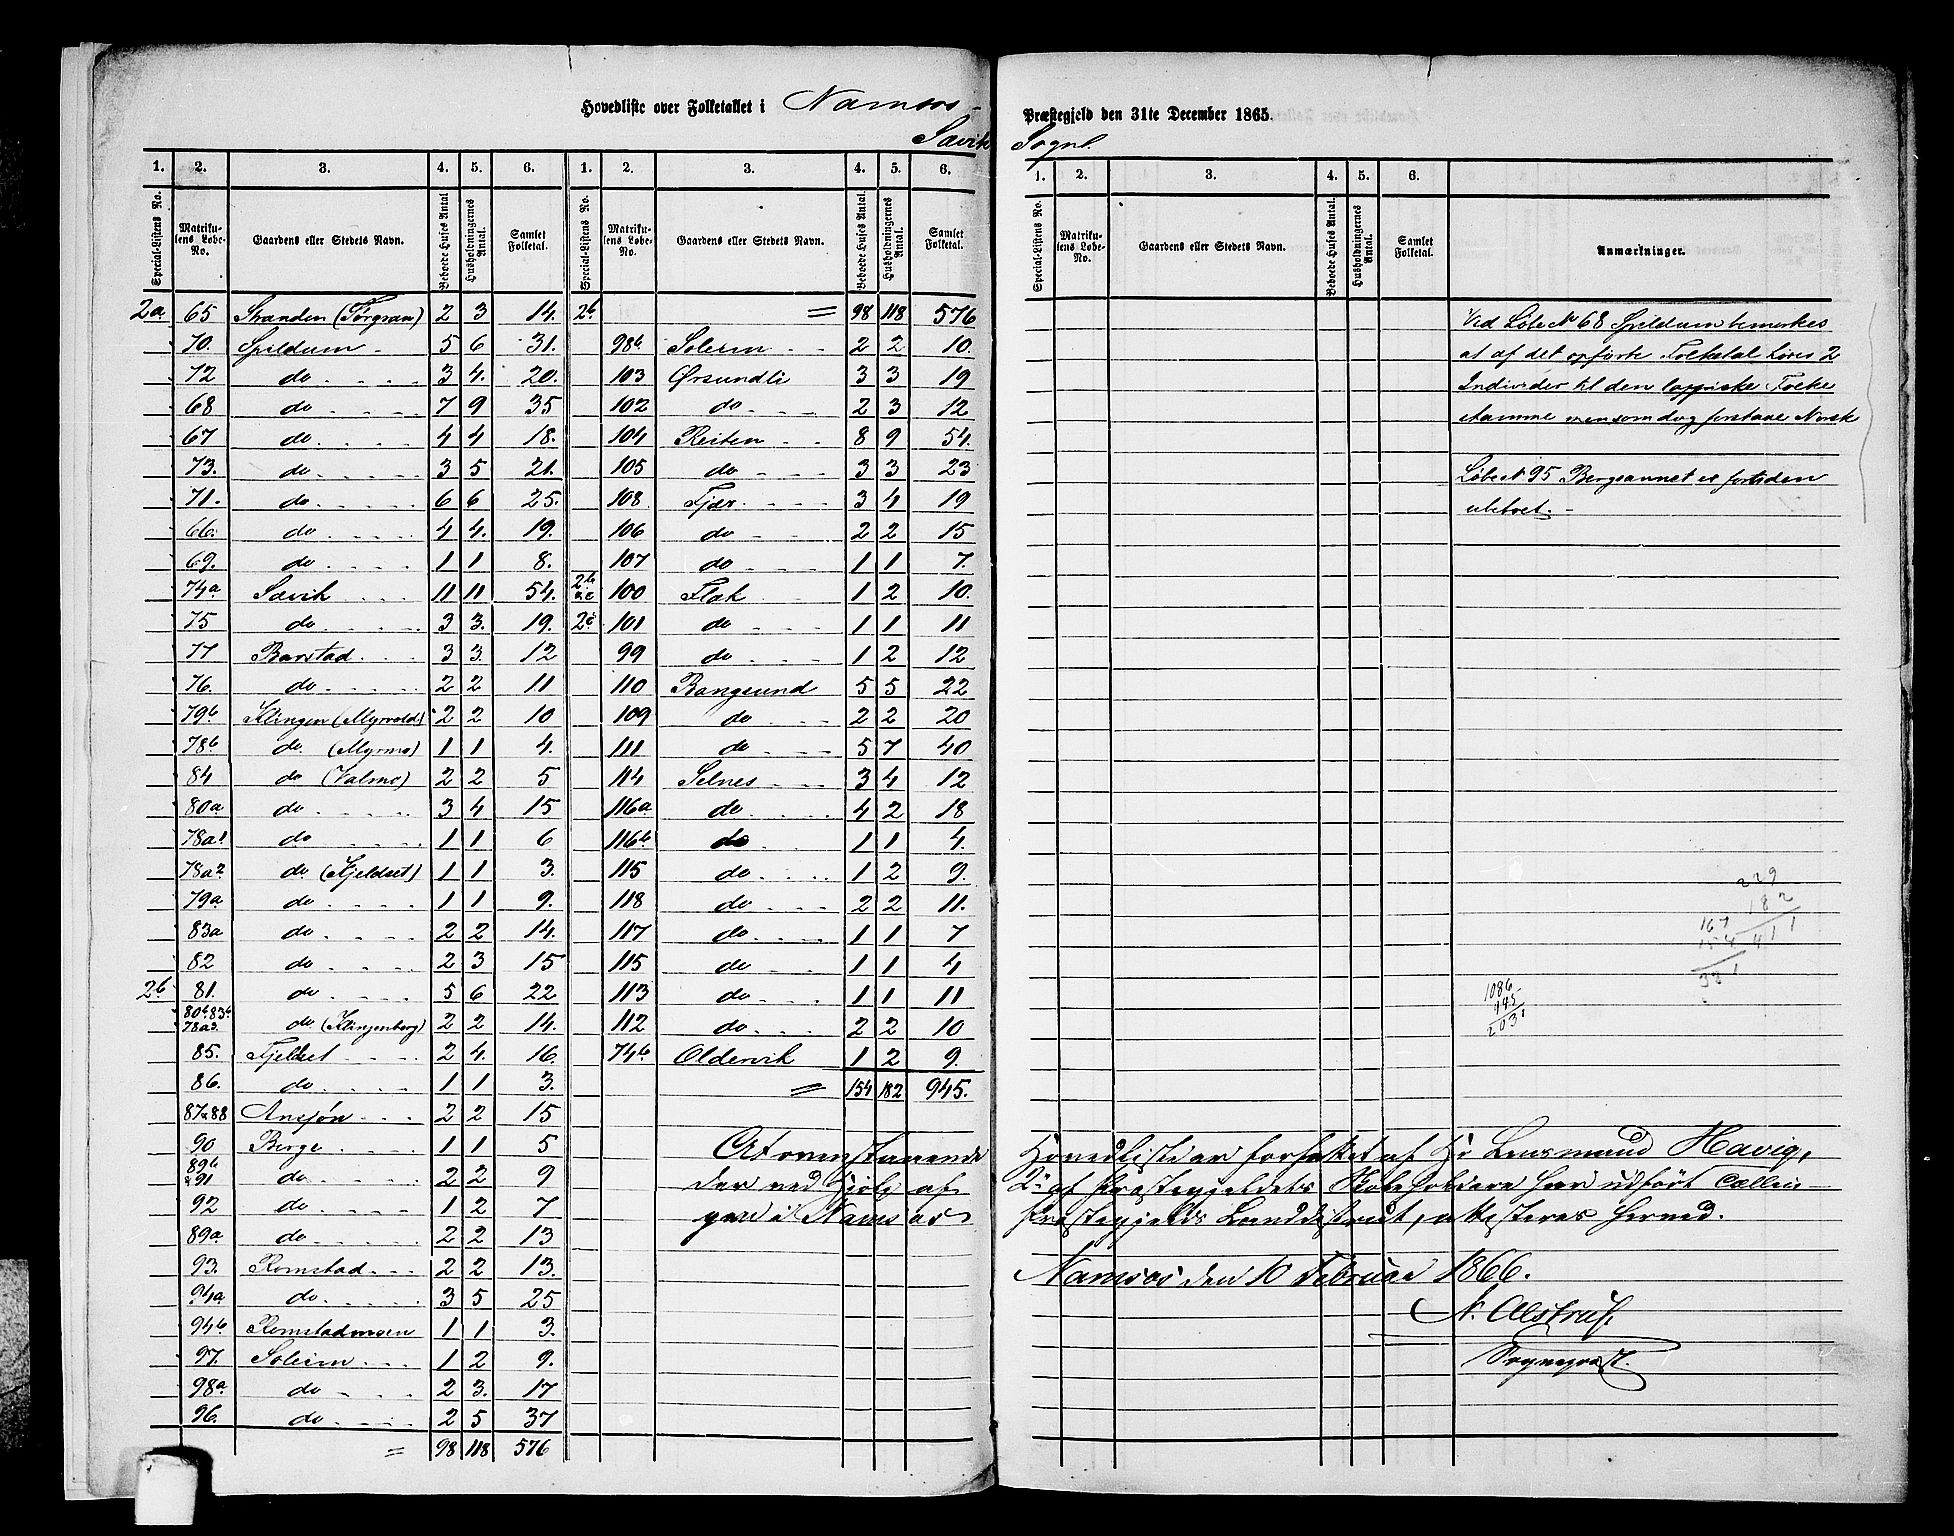 Hovedliste over Folketallet i Namsos Præstegjeld den 31te December 1865.
Sævik Sogn.
1. 2. 3. 4. 5. 6. 1. 2. 3. 4. 5. 6. 1. 2. 3. 4. 5. 6.
Special-Listens No. Matrikulens Løbe-No. Gaardens eller Stedets Navn. Beboede Huses Antal Husholdningernes Antal. Samlet Folketal. Special-Listens No. Matrikulens Løbe-No. Gaardens eller Stedets Navn. Beboede Huses Antal. Husholdningernes Antal. Samlet Folketal.
Special-Listens No. Matrikulens Løbe-No. Gaardens eller Stedets Navn. Beboede Huses Antal. Husholdningernes Antal. Samlet Folketal. Anmærkninger.
2a 65 Stranden 2 3 14.
70. Spildum 5 6 31.
72 do 3 4. 20.
68 do 7 9 35
67 do 4 4 18.
73. do 3 5 21.
71. do 6 6 25.
66. do 4 4. 19.
69. do 1 1 8.
74a Sævik 11 11 54.
75 do 3 3. 19.
77 Barstad 3 3. 12
76. do 2 2 11
79b Klingen (Myrvold) 2 2 10
78b do (Myrmo) 1 1 4.
84 do (Valmo) 2 2 5
80a do 3 4 15
78a1 do 1 1 6
78a2 do (Kjeldset) 1 1 3.
79a do 1 1 9.
83a do 2 2 14.
82 do 2 3 15
2b 81. do 5 6 22
80b 83b 78a3. do (Klingenberg) 2 2 14.
85. Fjeldset 2 4. 16
86. do 1 1 3.
87 & 88 Ansjøn 2 2 15
90 Berge 1 1 5
89b & 91 do 2 2 9
92 do 1 2 7
89a do 2 2 13
93. Romstad 2 2 13.
94a do 3 5 25
94b Romstadmoen 1 1 3.
97. Solem 1 2 9.
98a do 2 3. 17
96. do 2 5 37
= 98 118 576
2b = 98 118 576
98b Solem 2 2 10.
103 Ørsundli 3 3 19
102 do 2 3 12
104 Reiten 8 9 54.
105 do 3 3 23
108 Fjær 3 4 19
106 do 2 2 15
107 do 1 1 7.
2b & c 100 Flak 1 2 10.
2c 101 do 1 1 11
99 do 1 2 12
110 Bangsund 5 5 22
109 do 2 2 20
111 do 5 7 40
114 Selnes 3 4 12
116a do 4 2 18
116b do 1 1 4.
115 do 1 2 9.
118 do 2 2 11.
117 do 1 1 7
115 do 1 1 4
113 do 1 1 11
112 do 2 2 10
74b Oldervik 1 2 9.
= 154 182 945.
Ved Løbe No 68 Spildum bemerkes
at af det opførte Folketal høre 2
Individer til den lappiske Folke
stamme som dog forstaae Norsk
Løbe No 95 Bergsaunet er fortiden
ubeboet. -
229
182
411
167
154
331
1086
945
2031
At ovenstaaende Hovedliste er forfattet af Hr Lensmand Havig,
der ved Hjælp af 2de af Præstegjeldets Skoleholdere har udført Tællin-
gen i Namsos Præstegjelds Landdistrict, attesteres herved.
Namsos den 10 Februar 1866.
N. Alstrup.
Sogneprest.